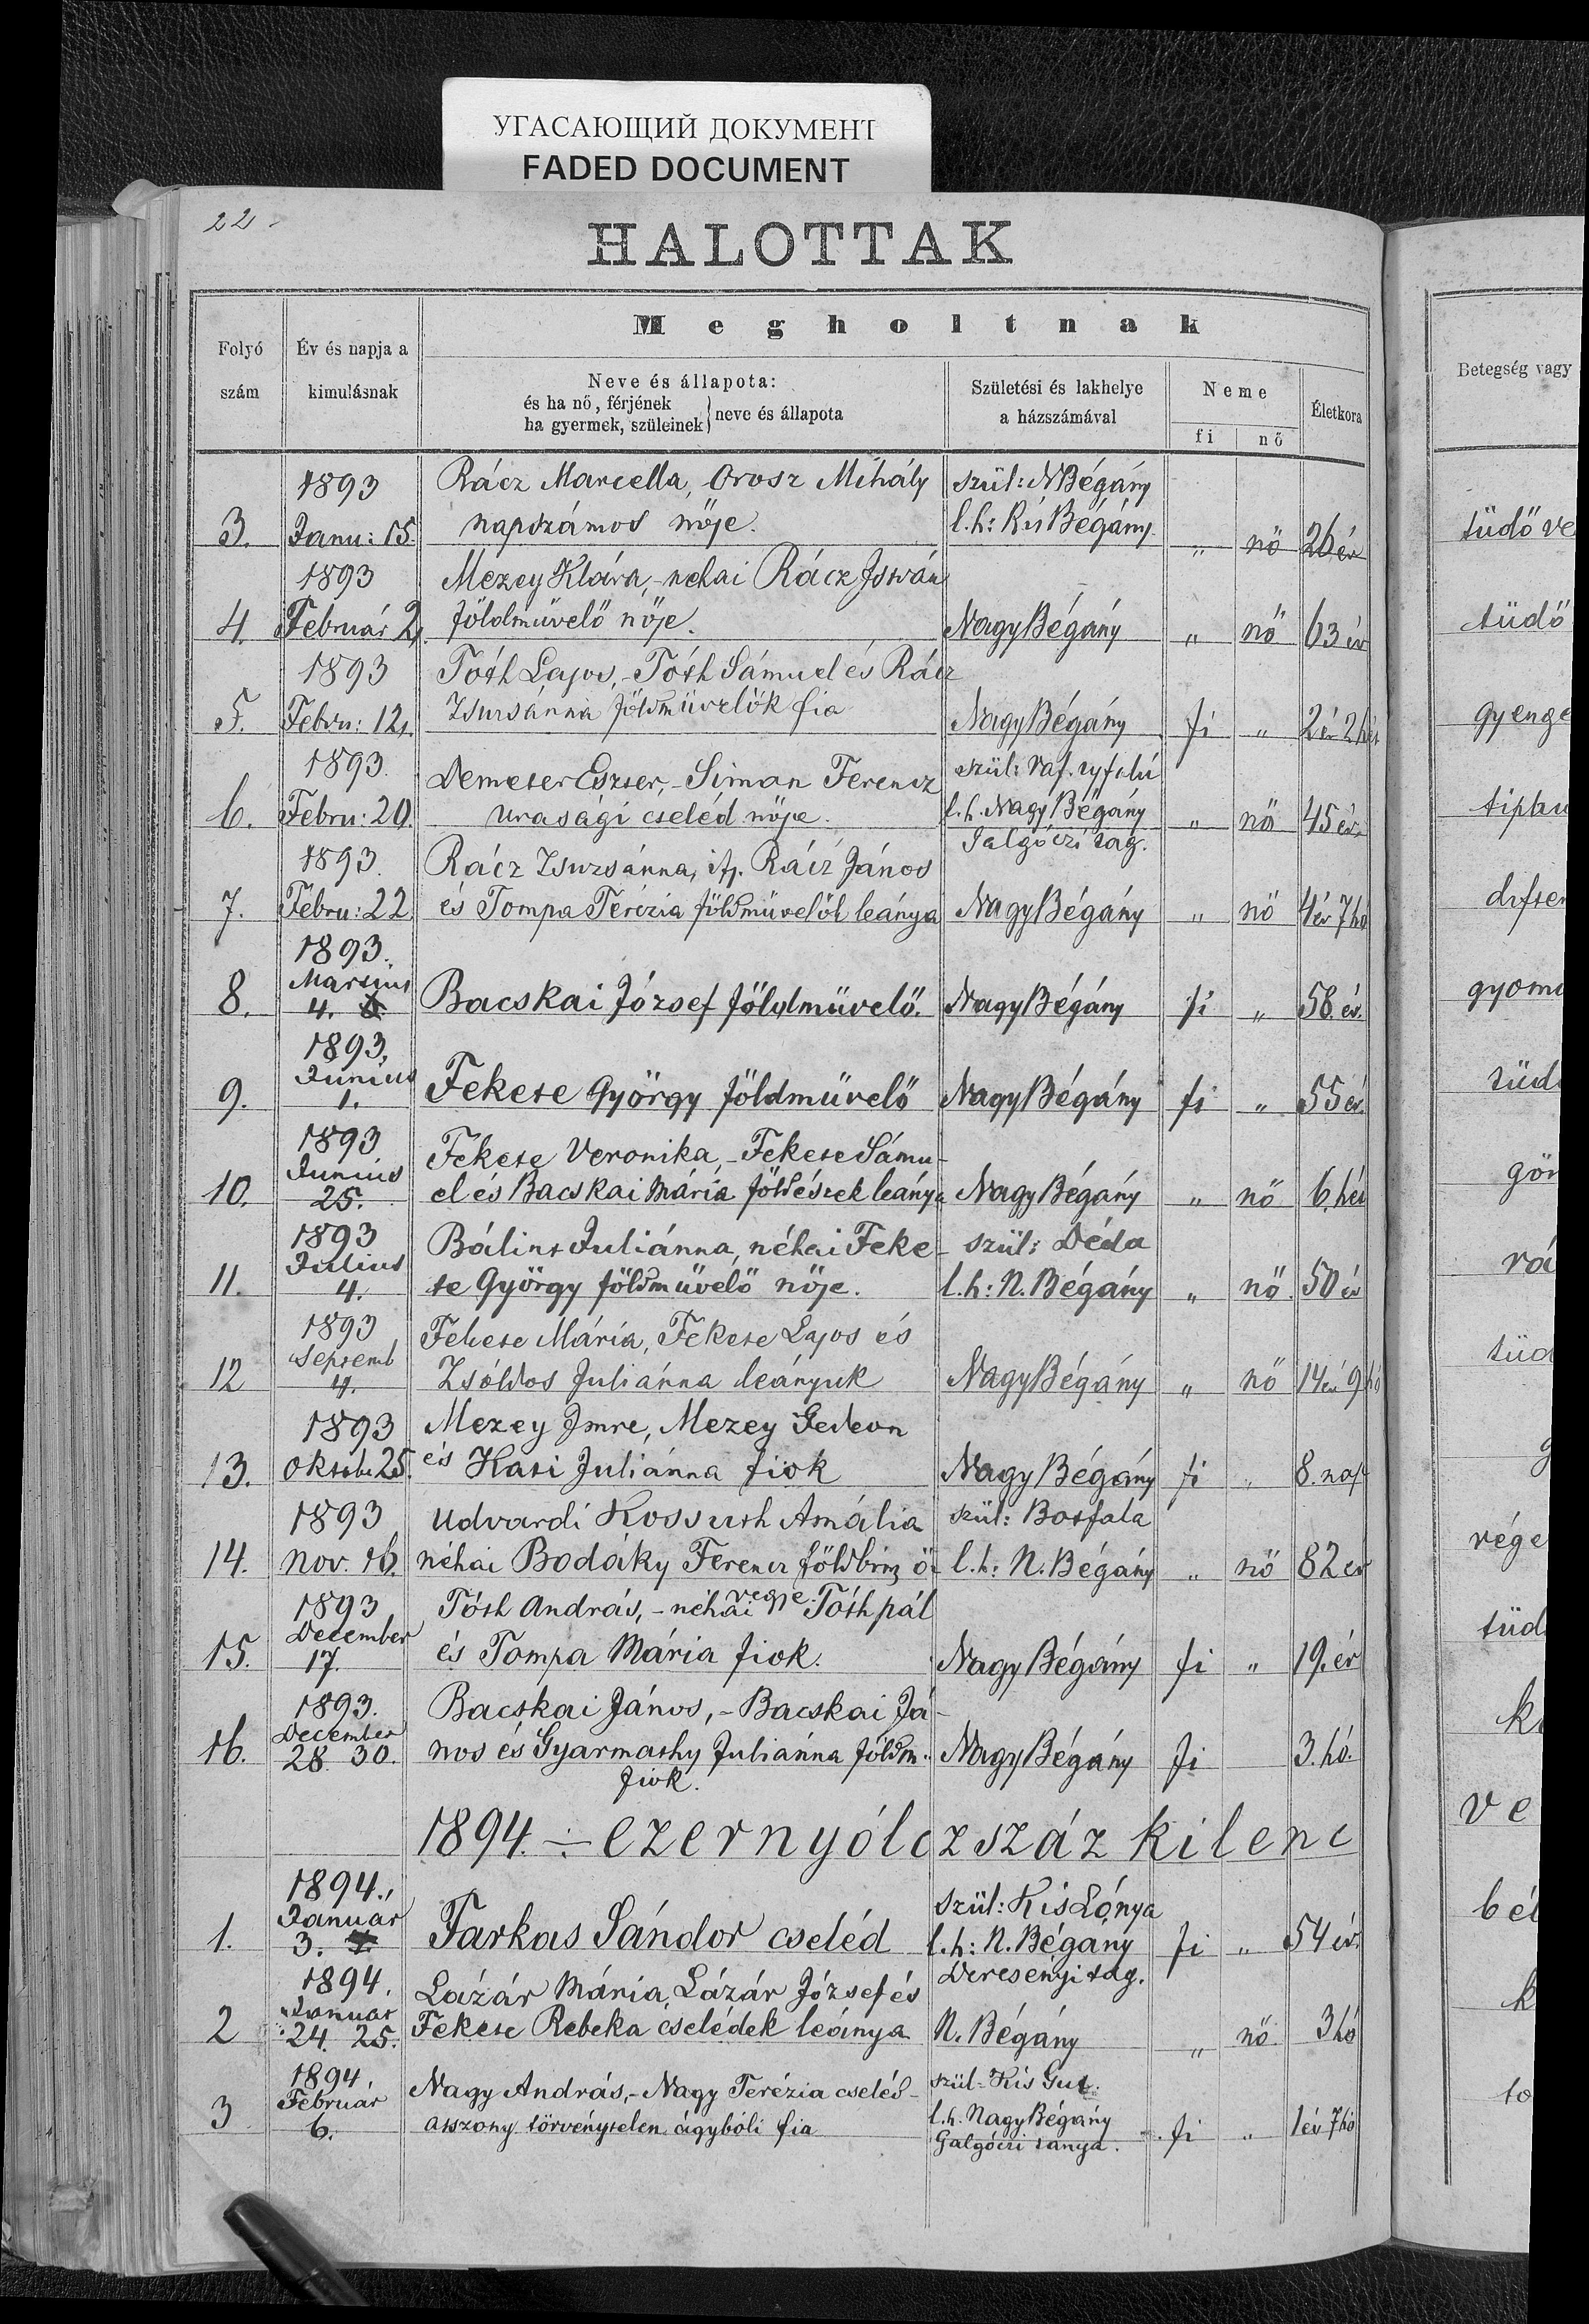 УГАСАЮЩИЙ ДОКУМЕНТ
FADED DOCUMENT
22
HALOTTAK
Folyó szám
Év és napja a kimulásnak
Megholtnak
Neve és állapota:
és ha nő, férjének
ha gyermek, szüleinek
neve és állapota
Születési és lakhelye
a házszámával
Neme
fi nő
Életkora
Betegség vagy
1893 Rácz Marcella, Orosz Mihály szül: NBégány
3. Janu: 15. napszámos nője. l.h: Kis Bégány. „ nő 26 év
tüdő vé
1893 Mezey Klára, - néhai Rácz István
4. Február 2. földmüvelő nője. Nagy Bégány „ nő 63 év
tüdő
1893 Tóth Lajos, - Tóth Sámuel és Rácz
5. Febru: 12. Zsuzsánna földmüvelők fia Nagy Bégány fi „ 2 év 2 hét
gyenge
1893. Demeter Eszter, - Siman Ferencz szül:
6. Febru: 20. urasági cseléd nője. l.h. Nagy Bégány „ nő 45 év
Galgóczi tag.
1893. Rácz Zsuzsánna, ifj. Rácz János
7. Febru: 22 és Tompa Terézia földmüvelők leánya Nagy Bégány „ nő 4 év 7 hó
1893.
Martius
8. 4. Bacskai József földmüvelő. Nagy Bégány fi „ 58. év.
1893.
Junius
9. 1. Fekete György földmüvelő Nagy Bégány fi „ 55 év.
1893 Fekete Veronika, - Fekete Sámu-
Junius
10. 25. el és Bacskai Mária földészek leánya Nagy Bégány „ nő 6. hét
1893 Bálint Juliánna, néhai Feke- szül: Déda
Julius
11. 4. te György földmüvelő nője. l.h: N. Bégány „ nő 50 év
1893 Fekete Mária, Fekete Lajos és
Septemb
12 4. Zsóldos Juliánna leányuk Nagy Bégány „ nő 14 év 9 hó
1893 Mezey Imre, Mezey Gedeon
13. Oktobe 25. és Kati Juliánna fiok Nagy Bégány fi „ 8. nap
1893 Udvardi Kossuth Amália szül:
14. Nov. 16. néhai Bodáky Ferencz földbirt ö- l.h: N. Bégány „ nő 82 év
vegje.
1893 Tóth András, - néhai Tóth pál
December
15. 17. és Tompa Mária fiok. Nagy Bégány fi „ 19. év
1893. Bacskai János, - Bacskai Já-
December
16. 28. 30. nos és Gyarmathy Juliánna földm. Nagy Bégány fi 3. hó.
fiok.
1894. ÷ ezernyólczszáz kilenc
1894., szül: Kis Lónya
Januar
1. 3. Farkas Sándor cseléd l.h: N. Bégány fi „ 54 év.
Deresenyi tag.
1894. Lázár Mária, Lázár József és
Januar
2 24. 25. Fekete Rebeka cselédek leánya N. Bégány „ nő 3 hó
1894. Nagy András, - Nagy Terézia cseléd- szül: Kis Gut.
Február
3 6. asszony törvénytelen ágybóli fia l.h. Nagy Bégány fi „ 1 év 7 hó
Galgóczi tanya.